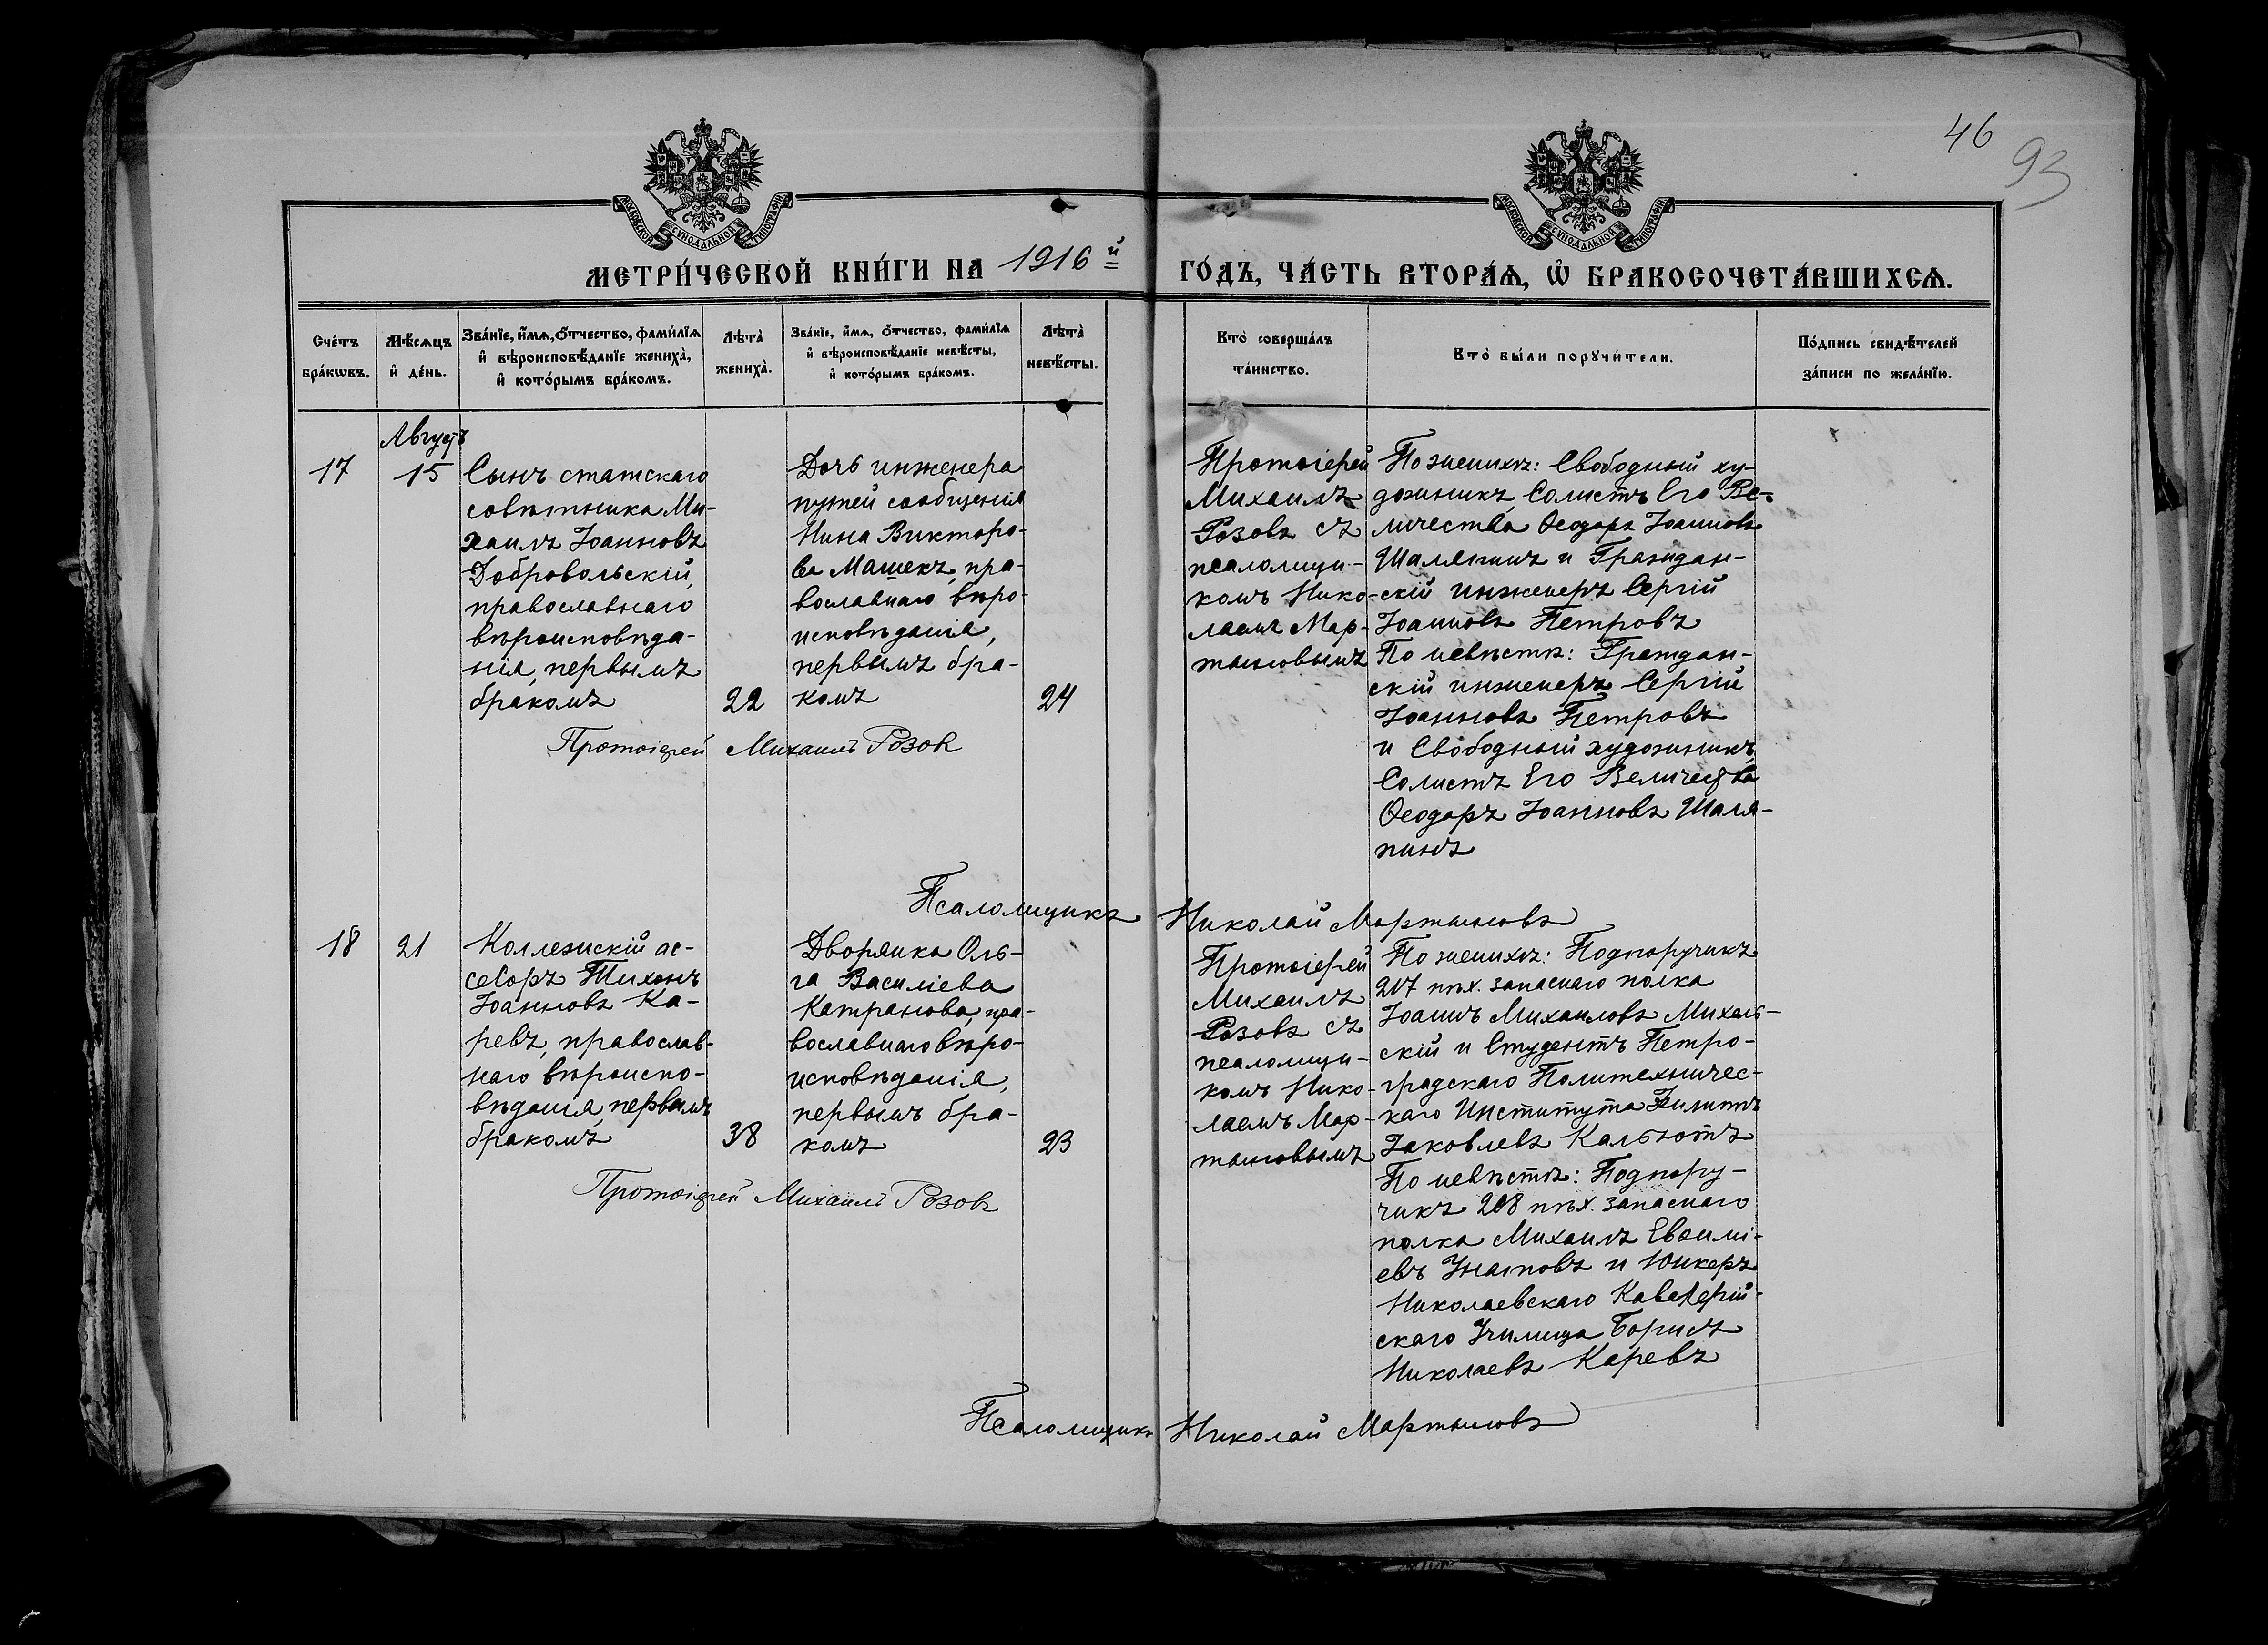 46
93
МОСКОВСКОЙ СУНОДАЛЬНОЙ ТИПОГРАФІИ
МОСКОВСКОЙ СУНОДАЛЬНОЙ ТИПОГРАФІИ
МЕТРИ́ЧЕСКОЙ КНИ́ГИ НА 1916й ГО́ДЪ, ЧА́СТЬ ВТОРА́Ѧ, Ѡ҆ БРАКОСОЧЕТА́ВШИХСѦ.
Сче́тъ бра́кѡвъ.
Мѣ́сѧцъ и҆ де́нь.
Зва́нїе, и҆́мѧ, ѻ҆́тчество, фами́лїѧ и҆ вѣроисповѣ́данїе жениха̀, и҆ кото́рымъ бра́комъ.
Лѣ́та̀ жениха̀.
Зва́нїе, и҆́мѧ, ѻ҆́тчество, фами́лїѧ и҆ вѣроисповѣ́данїе невѣ́сты, и҆ кото́рымъ бра́комъ.
Лѣ́та̀ невѣ́сты.
Кто̀ соверша́лъ та́инство.
Кто̀ бы́ли порꙋчи́тели.
По́дпись свидѣ́телей за́писи по жела́нїю.
Августъ
17
15
Сынъ статскаго
совѣтника Ми-
хаилъ Іоанновъ
Добровольскій,
православнаго
вѣроисповѣда-
нія, первымъ
бракомъ
22
Дочь инженера
путей сообщенія
Нина Викторо-
ва Машекъ, пра-
вославнаго вѣро-
исповѣданія,
первымъ бра-
комъ
24
Протоіерей
Михаилъ
Розовъ съ
псаломщи-
комъ Нико-
лаемъ Мар-
тыновымъ
По женихѣ: Свободный ху-
дожникъ, Солистъ Его Ве-
личества Ѳеодоръ Іоанновъ
Шаляпинъ и Граждан-
скій инженеръ Сергій
Іоанновъ Петровъ
По невѣстѣ: Граждан-
скій инженеръ Сергій
Іоанновъ Петровъ
и Свободный художникъ,
Солистъ Его Величества
Ѳеодоръ Іоанновъ Шаля-
пинъ
Протоіерей Михаилъ Розовъ
Псаломщикъ Николай Мартыновъ
18
21
Коллежскій ас-
сесоръ Тихонъ
Іоанновъ Ка-
ревъ, православ-
наго вѣроиспо-
вѣданія, первымъ
бракомъ
38
Дворянка Оль-
га Василіева
Катранова, пра-
вославнаго вѣро-
исповѣданія,
первымъ бра-
комъ
23
Протоіерей
Михаилъ
Розовъ съ
псаломщи-
комъ Нико-
лаемъ Мар-
тыновымъ
По женихѣ: Подпоручикъ
217 пѣх. запаснаго полка
Іоаннъ Михаиловъ Михель-
скій и Студентъ Петро-
градскаго Политехничес-
каго Института
Іаковлевъ
По невѣстѣ: Подпору-
чикъ 208 пѣх. запаснаго
полка Михаилъ Евѳимі-
евъ Игнатовъ и Юнкеръ
Николаевскаго Кавалерій-
скаго Училища Борисъ
Николаевъ Каревъ
Протоіерей Михаилъ Розовъ
Псаломщикъ Николай Мартыновъ